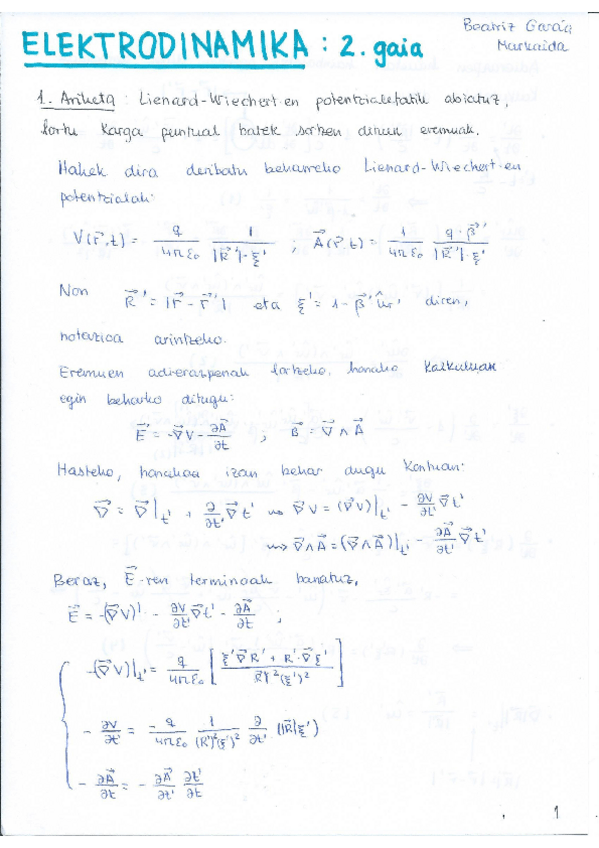 Beatriz García
Markaida
ELEKTRODINAMIKA : 2. gaia
1. Ariketa : Lienard-Wiechert-en potentzialetatik abiatuz,
lortu karga puntual batek sortzen dituen eremuak.
Hauek dira deribatu beharreko Lienard-Wiechert-en
potentzialak:
V(r⃗,t) = q/(4πε₀) 1/(|R⃗'|·ξ') ; A⃗(r⃗,t) = 1/(4πε₀) (q·β⃗')/(|R⃗'|·ξ')
Non R⃗' = |r⃗ - r⃗'| eta ξ' = 1 - β⃗'ûr' diren,
notazioa arintzeko.
Eremuen adierazpenak lortzeko, honako kalkuluak
egin beharko ditugu:
E⃗ = -∇⃗V - ∂A⃗/∂t ; B⃗ = ∇⃗ ∧ A⃗
Hasteko, honakoa izan behar dugu kontuan:
∇⃗ = ∇⃗|t' + ∂/∂t' ∇⃗t' ⇝ ∇⃗V = (∇⃗V)|t' - ∂V/∂t' ∇⃗t'
⇝ ∇⃗∧A⃗ = (∇⃗∧A⃗)|t' - ∂A⃗/∂t' ∇⃗t'
Beraz, E⃗-ren terminoak banatuz,
E⃗ = -(∇⃗V)' - ∂V/∂t' ∇⃗t' - ∂A⃗/∂t ;
-(∇⃗V)|t' = q/(4πε₀) [ (ξ'∇⃗R' + R'·∇⃗ξ')/(R⃗'²(ξ')²) ]
- ∂V/∂t' = -q/(4πε₀) 1/((R')²(ξ')²) ∂/∂t' (|R⃗|ξ')
- ∂A⃗/∂t = - ∂A⃗/∂t' ∂t'/∂t
1